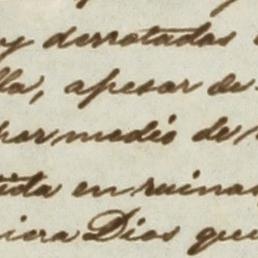 y derrotadas
lla, apesar de
por medio de
en ruinas
iera Dios que